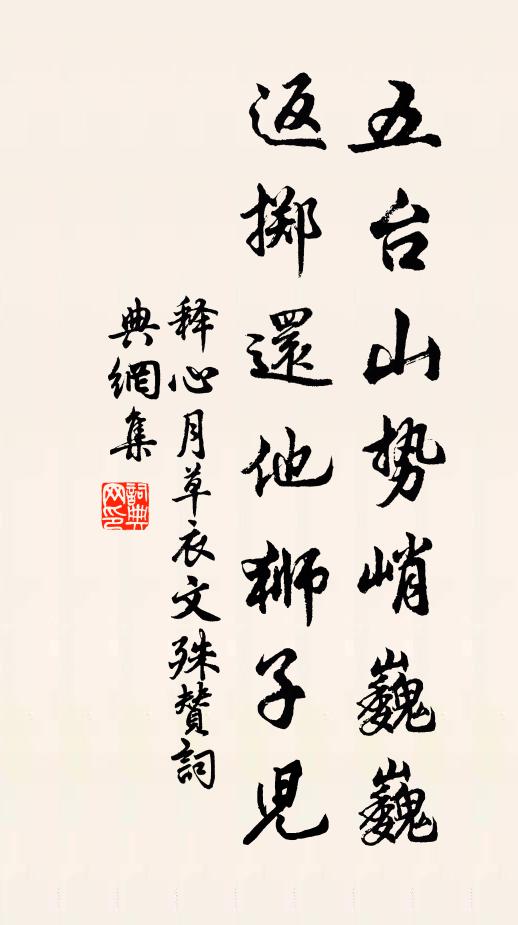 五台山势峭巍巍
返掷還他獅子児
释心月草衣文殊賛詞
典網集
詞典网印